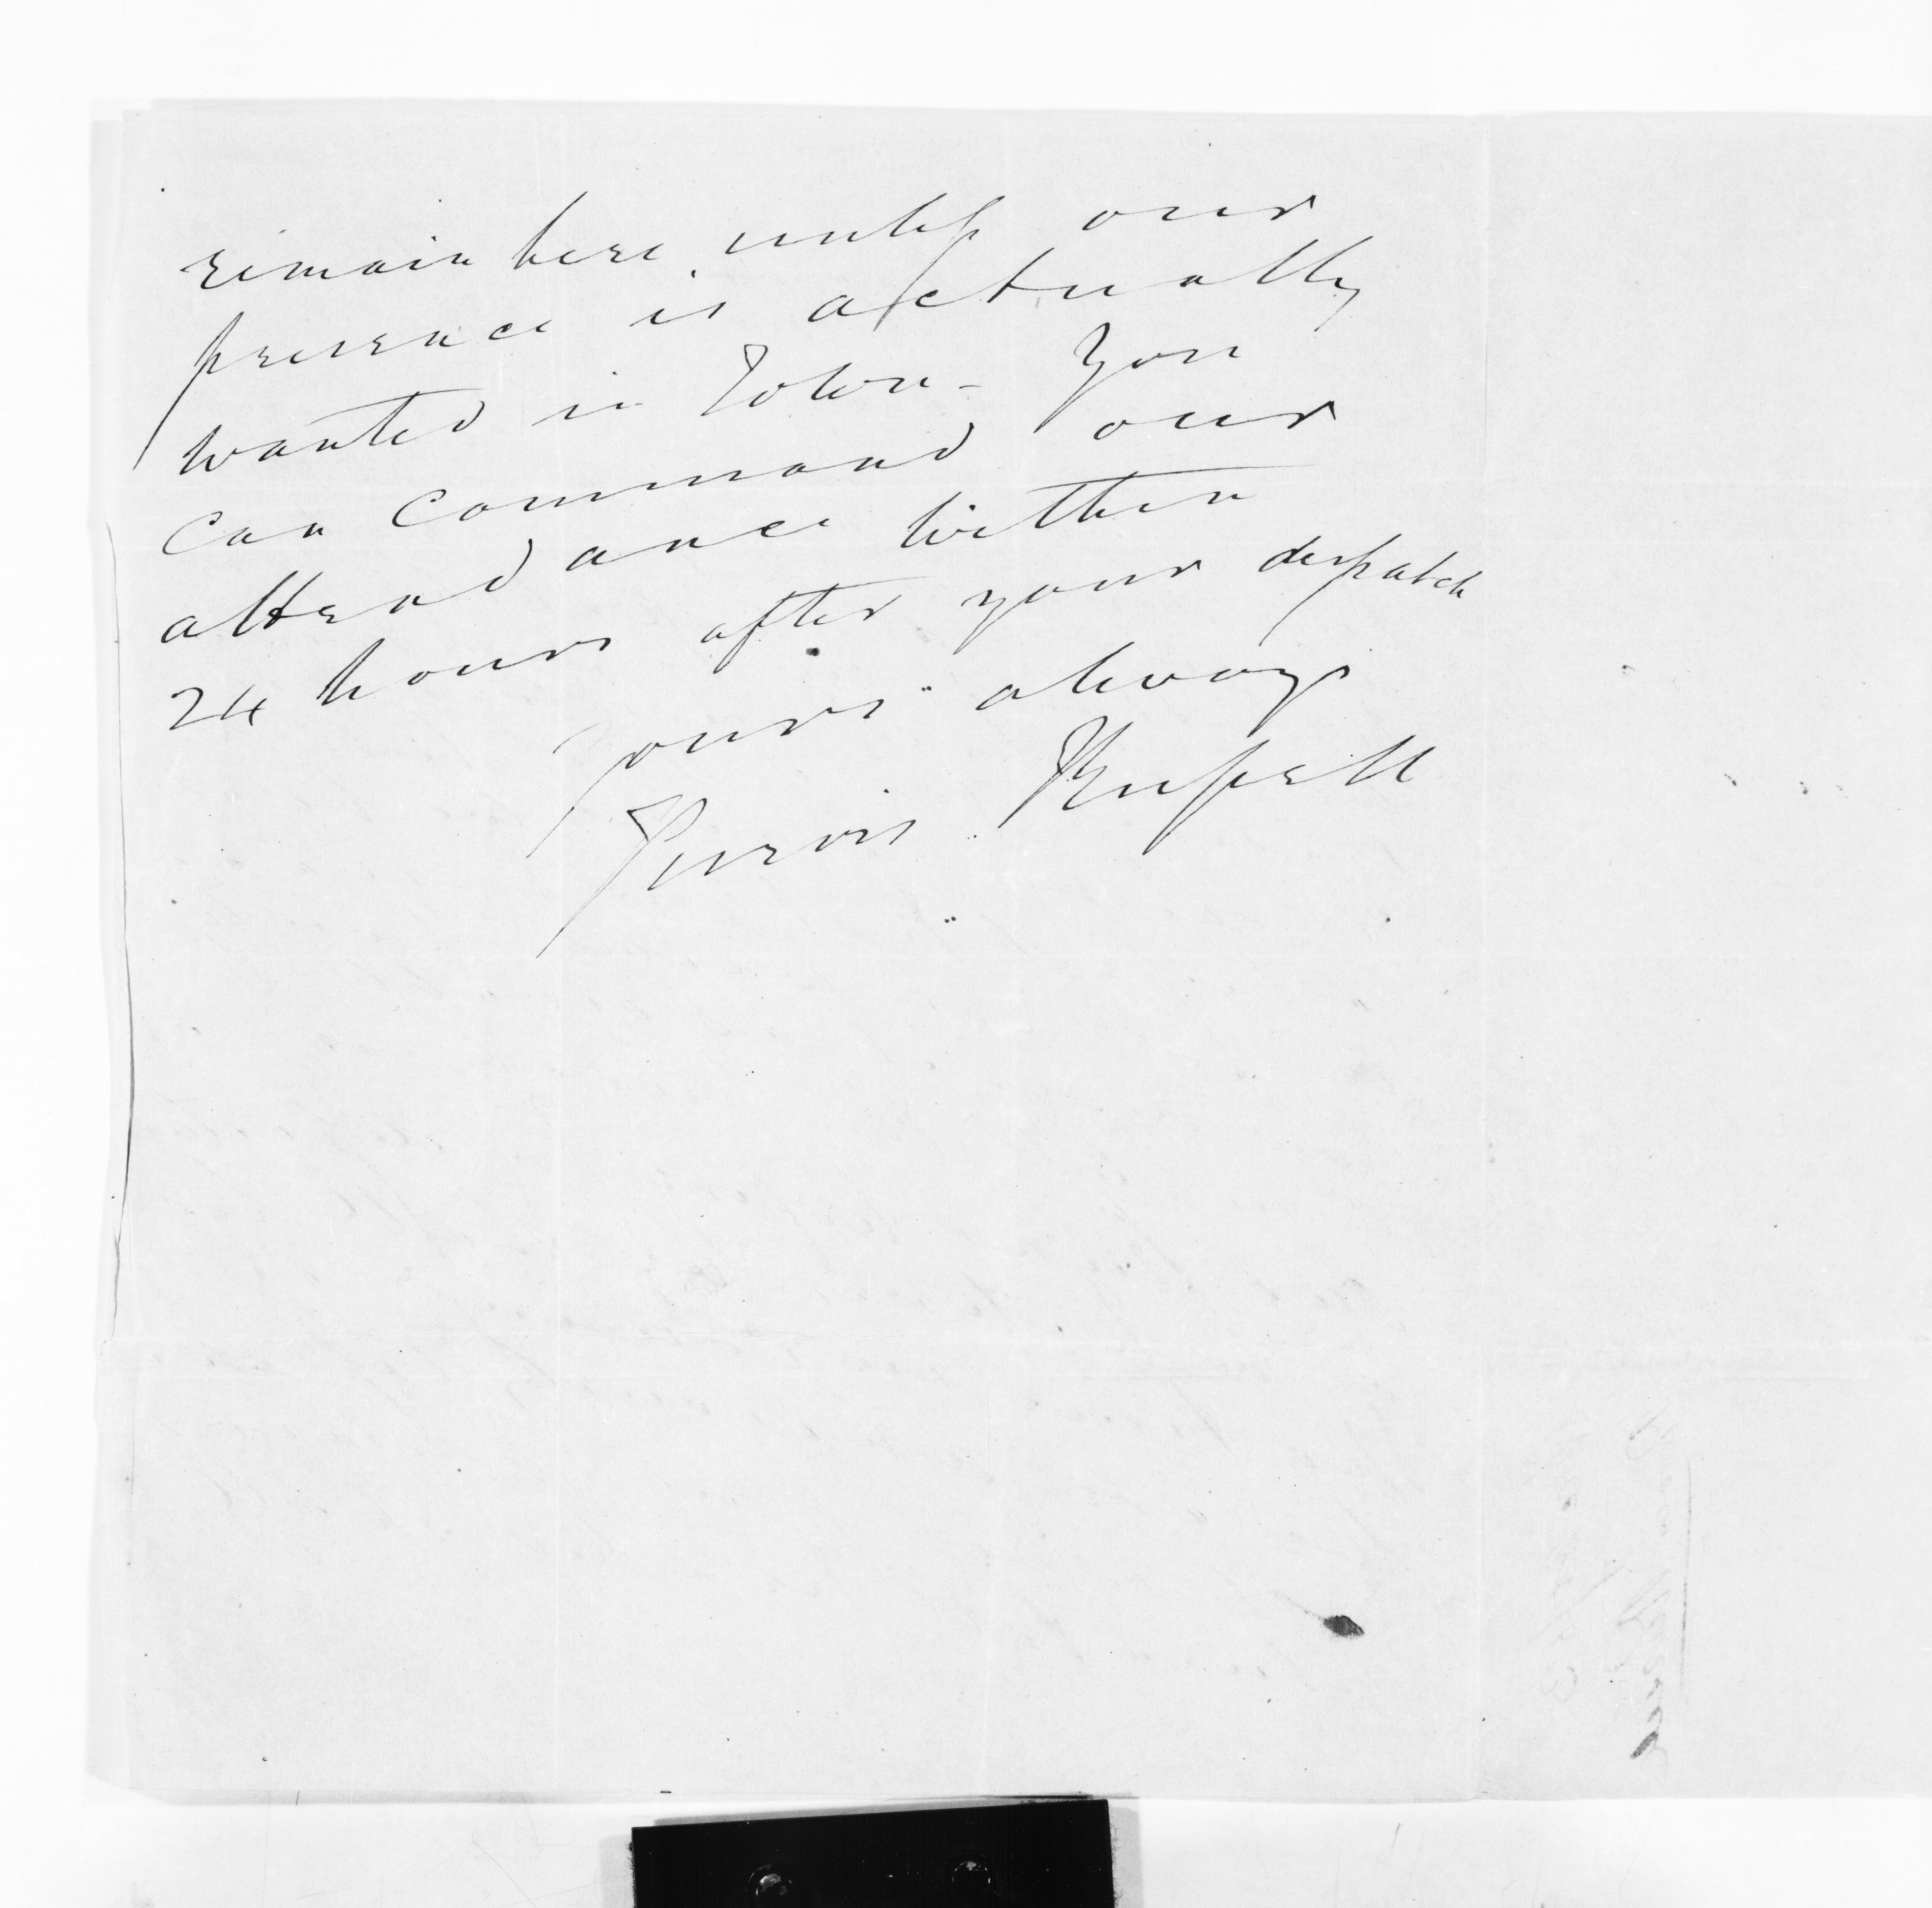 remain here unless our
presence is actually
wanted in Town - You
can command our
attendance within
24 hours after your despatch
yours always
Purvis Russell